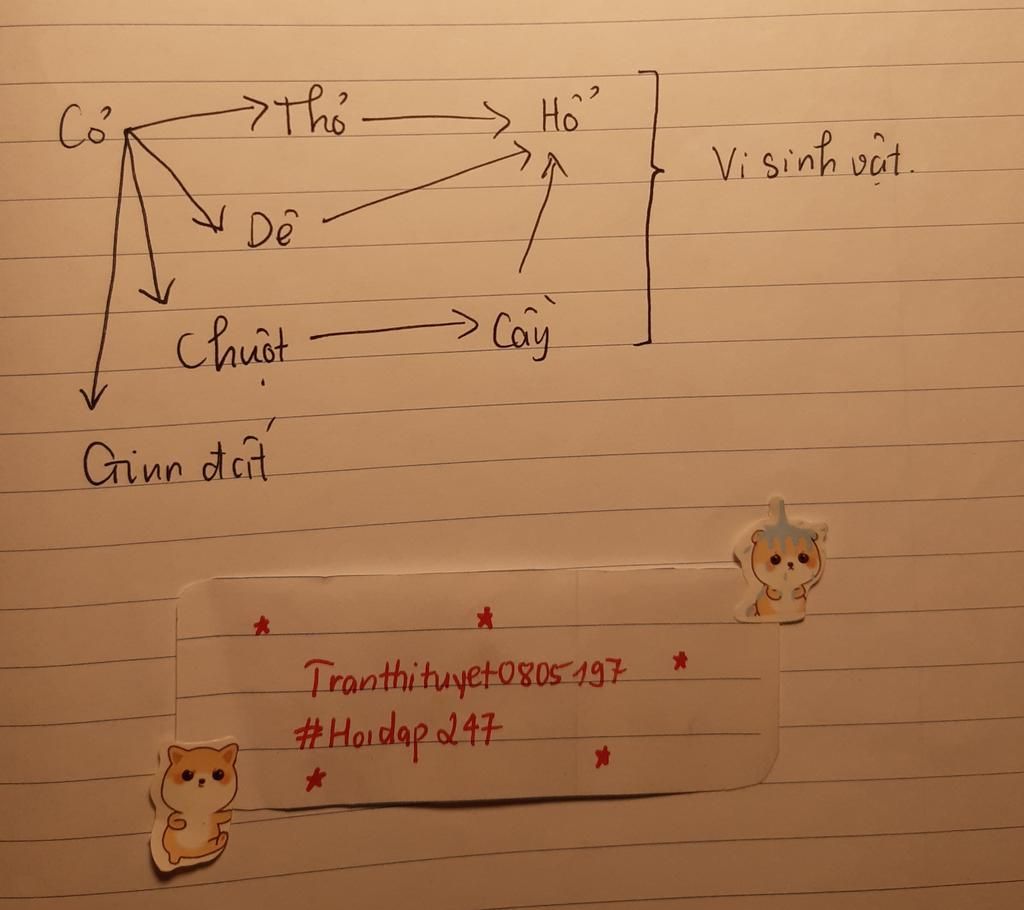 Cỏ Thỏ Hổ
Vi sinh vật.
Dê
Chuột Cầy
Giun đất
Tranthituyet0805197
#Hoidap247